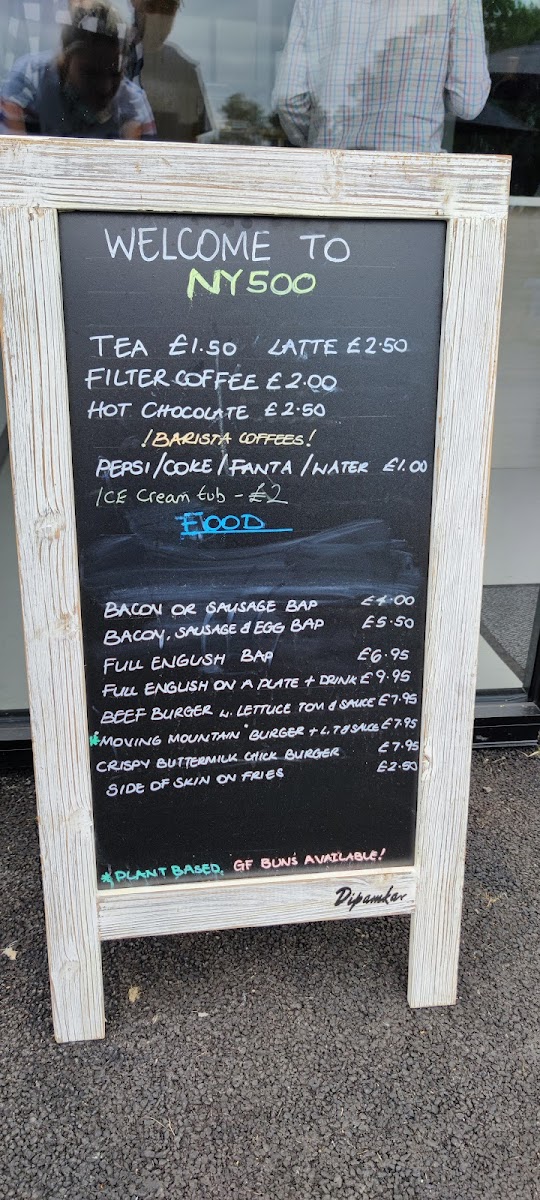 WELCOME TO
NY500
TEA £1.50 LATTE £2.50
FILTER COFFEE £2.00
HOT CHOCOLATE £2.50
!BARISTA COFFEES!
PEPSI/COKE/FANTA/WATER £1.00
ICE Cream tub - £2
FOOD
BACON OR SAUSAGE BAP £4.00
BACON, SAUSAGE & EGG BAP £5.50
FULL ENGLISH BAP £6.95
FULL ENGLISH ON A PLATE + DRINK £9.95
BEEF BURGER w. LETTUCE TOM & SAUCE £7.95
*MOVING MOUNTAIN" BURGER + L.T & SAUCE £7.95
CRISPY BUTTERMILK CHICK BURGER £7.95
SIDE OF SKIN ON FRIES £2.50
*PLANT BASED, GF BUNS AVAILABLE!
Dipamkar